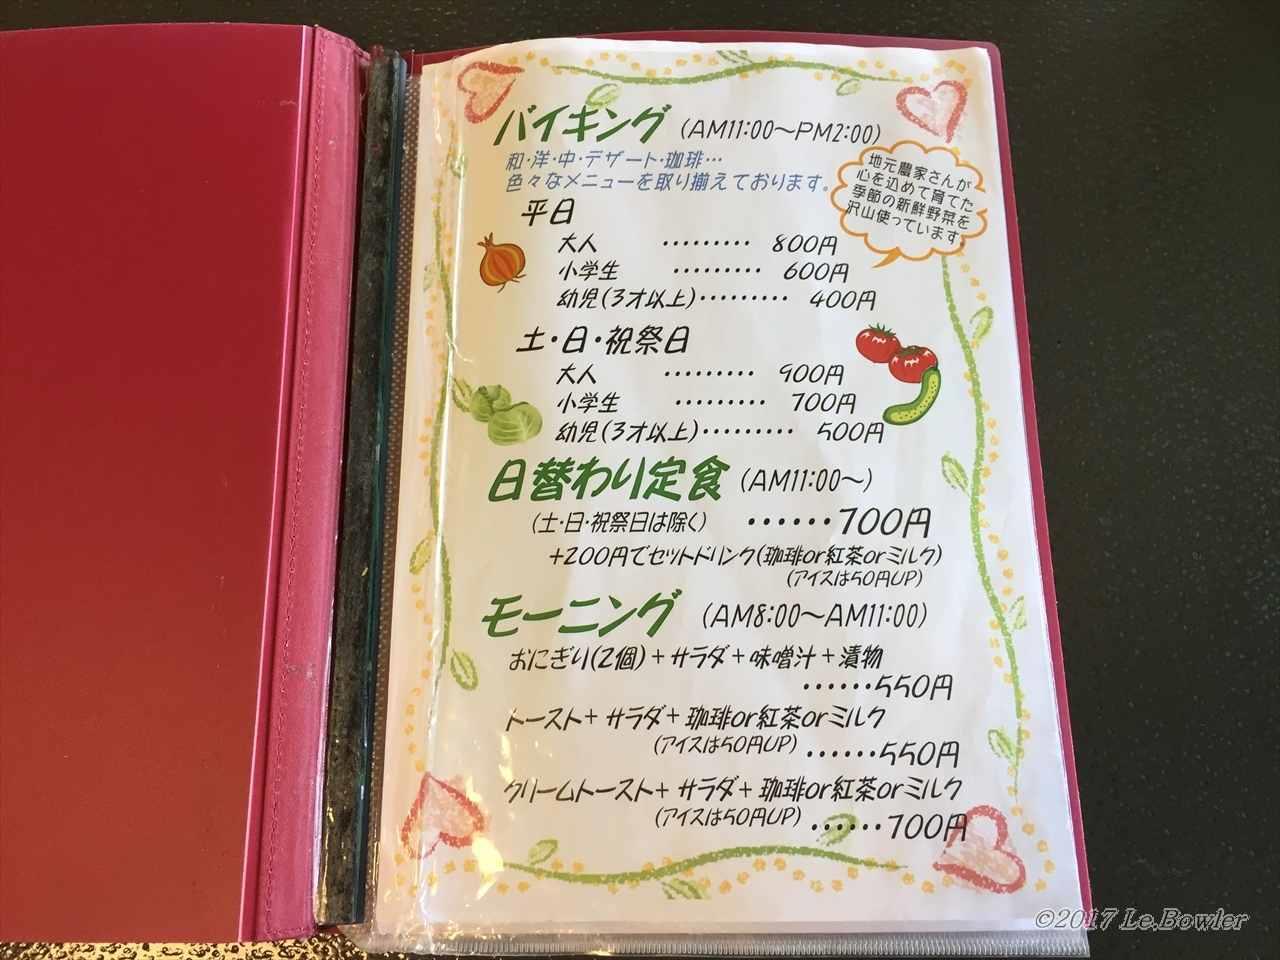 バイキング (AM11:00～PM2:00)
和・洋・中・デザート・珈琲…
色々なメニューを取り揃えております。
地元農家さんが
心を込めて育てた
季節の新鮮野菜を
沢山使っています。
平日
大人 ・・・・・・・・・ 800円
小学生 ・・・・・・・・・ 600円
幼児(3才以上)・・・・・・・・・ 400円
土・日・祝祭日
大人 ・・・・・・・・・ 900円
小学生 ・・・・・・・・・ 700円
幼児(3才以上)・・・・・・・・・ 500円
日替わり定食 (AM11:00～)
(土・日・祝祭日は除く) ・・・・・・700円
+200円でセットドリンク(珈琲or紅茶orミルク)
(アイスは50円UP)
モーニング (AM8:00～AM11:00)
おにぎり(2個)+サラダ+味噌汁+漬物
・・・・・・550円
トースト+サラダ+珈琲or紅茶orミルク
(アイスは50円UP) ・・・・・・550円
クリームトースト+サラダ+珈琲or紅茶orミルク
(アイスは50円UP) ・・・・・・700円
©2017 Le.Bowler